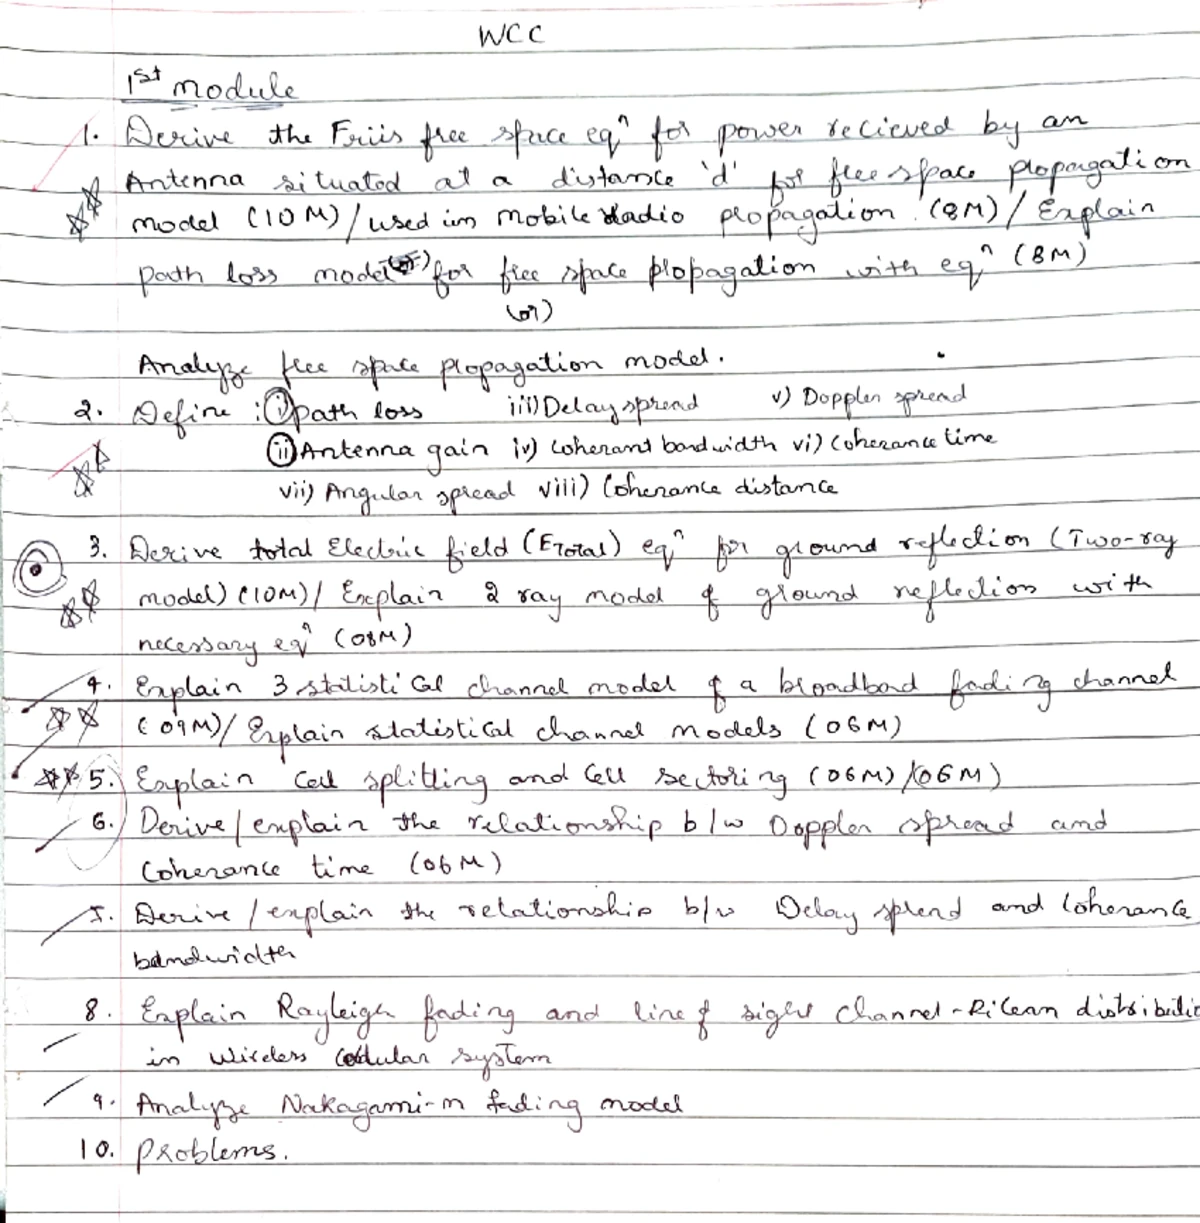 WCC
1st module
1. Derive the Friis free space eqn for power recieved by an
Antenna situated at a distance 'd' for free space propagation
model (10M)/used in mobile radio propagation (8M)/ Explain
path loss model for free space propagation with eqn (8M)
(or)
Analyze free space propagation model.
2. Define : i) path loss iii) Delay spread v) Doppler spread
ii) Antenna gain iv) coherant bandwidth vi) coherance time
vii) Angular spread viii) Coherance distance
3. Derive total Electric field (ETotal) eqn for ground reflection (Two-ray
model) (10M)/ Explain 2 ray model of ground reflection with
necessary eqn (08M)
4. Explain 3 statistical channel model of a broadband fading channel
(09M)/ Explain statistical channel models (06M)
5. Explain Cell splitting and Cell sectoring (06M)/(06M)
6. Derive/explain the relationship b/w Doppler spread and
Coherance time (06M)
7. Derive/explain the relationship b/w Delay spread and Coherance
bandwidth
8. Explain Rayleigh fading and line of sight channel - Ricean
in wireless cellular system
9. Analyze Nakagami-m fading model
10. Problems.